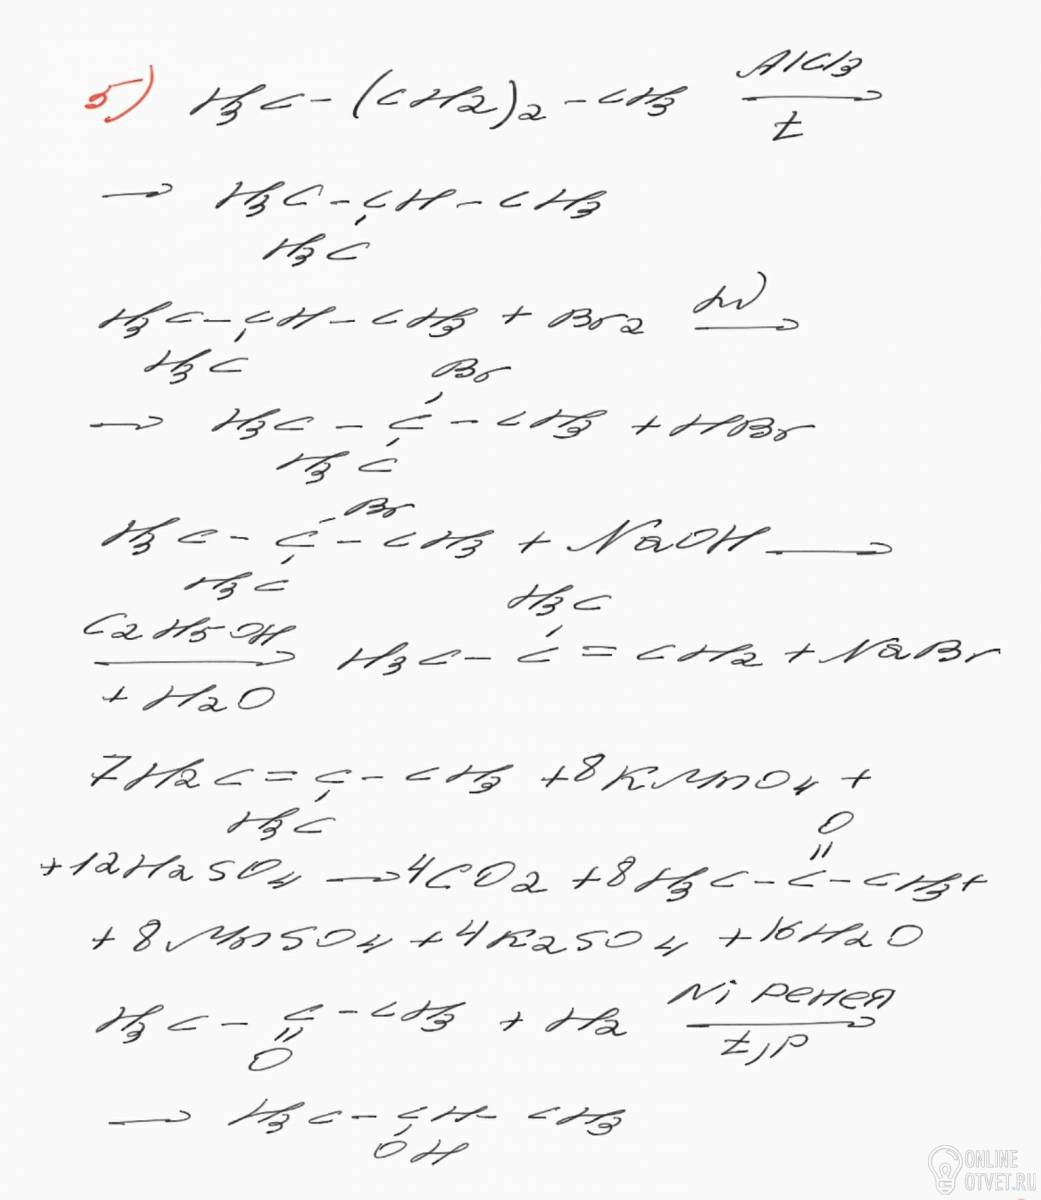 5) H3C - (CH2)2 - CH3 AlCl3 t
→ H3C - CH - CH3
H3C
H3C - CH - CH3 + Br2 hν →
H3C
Br
→ H3C - C - CH3 + HBr
H3C
Br
H3C - C - CH3 + NaOH →
H3C
H3C
C2H5OH → H3C - C = CH2 + NaBr
+ H2O
7H2C = C - CH3 + 8KMnO4 +
H3C
O
+ 12H2SO4 → 4CO2 + 8H3C - C - CH3 +
+ 8MnSO4 + 4K2SO4 + 16H2O
H3C - C - CH3 + H2 Ni Ренея →
O t, p
→ H3C - CH - CH3
OH
ONLINE
OTVET.RU